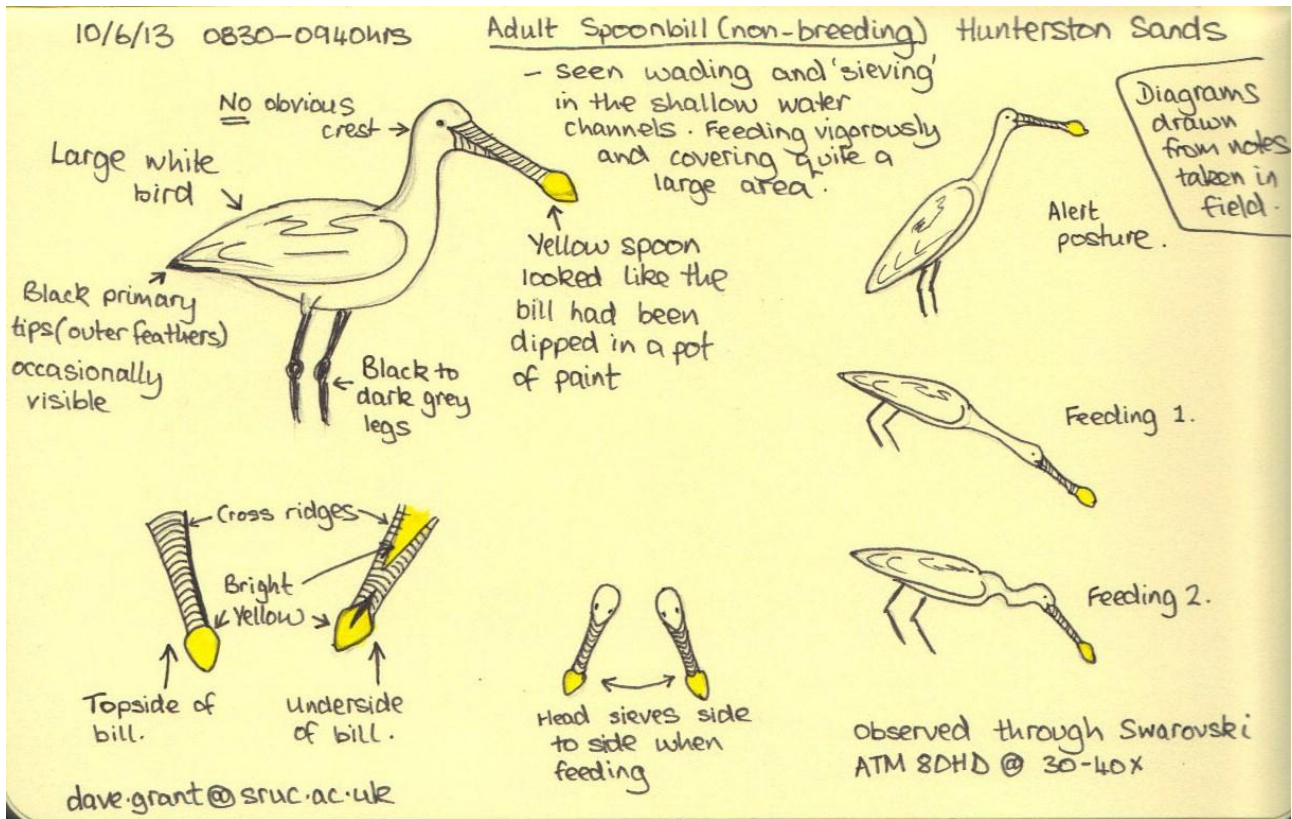 10/6/13 0830-0940hrs
Adult Spoonbill (non-breeding) Hunterston Sands
- seen wading and 'sieving'
in the shallow water
channels. Feeding vigorously
and covering quite a
large area.
Diagrams
drawn
from notes
taken in
field.
No obvious
crest
Large white
bird
Black primary
tips (outer feathers)
occasionally
visible
Yellow spoon
looked like the
bill had been
dipped in a pot
of paint
Black to
dark grey
legs
Alert
posture.
Feeding 1.
Feeding 2.
Cross ridges
Bright
Yellow
Topside of
bill.
underside
of bill.
Head sieves side
to side when
feeding
observed through Swarovski
ATM 80HD @ 30-40x
dave.grant@sruc.ac.uk